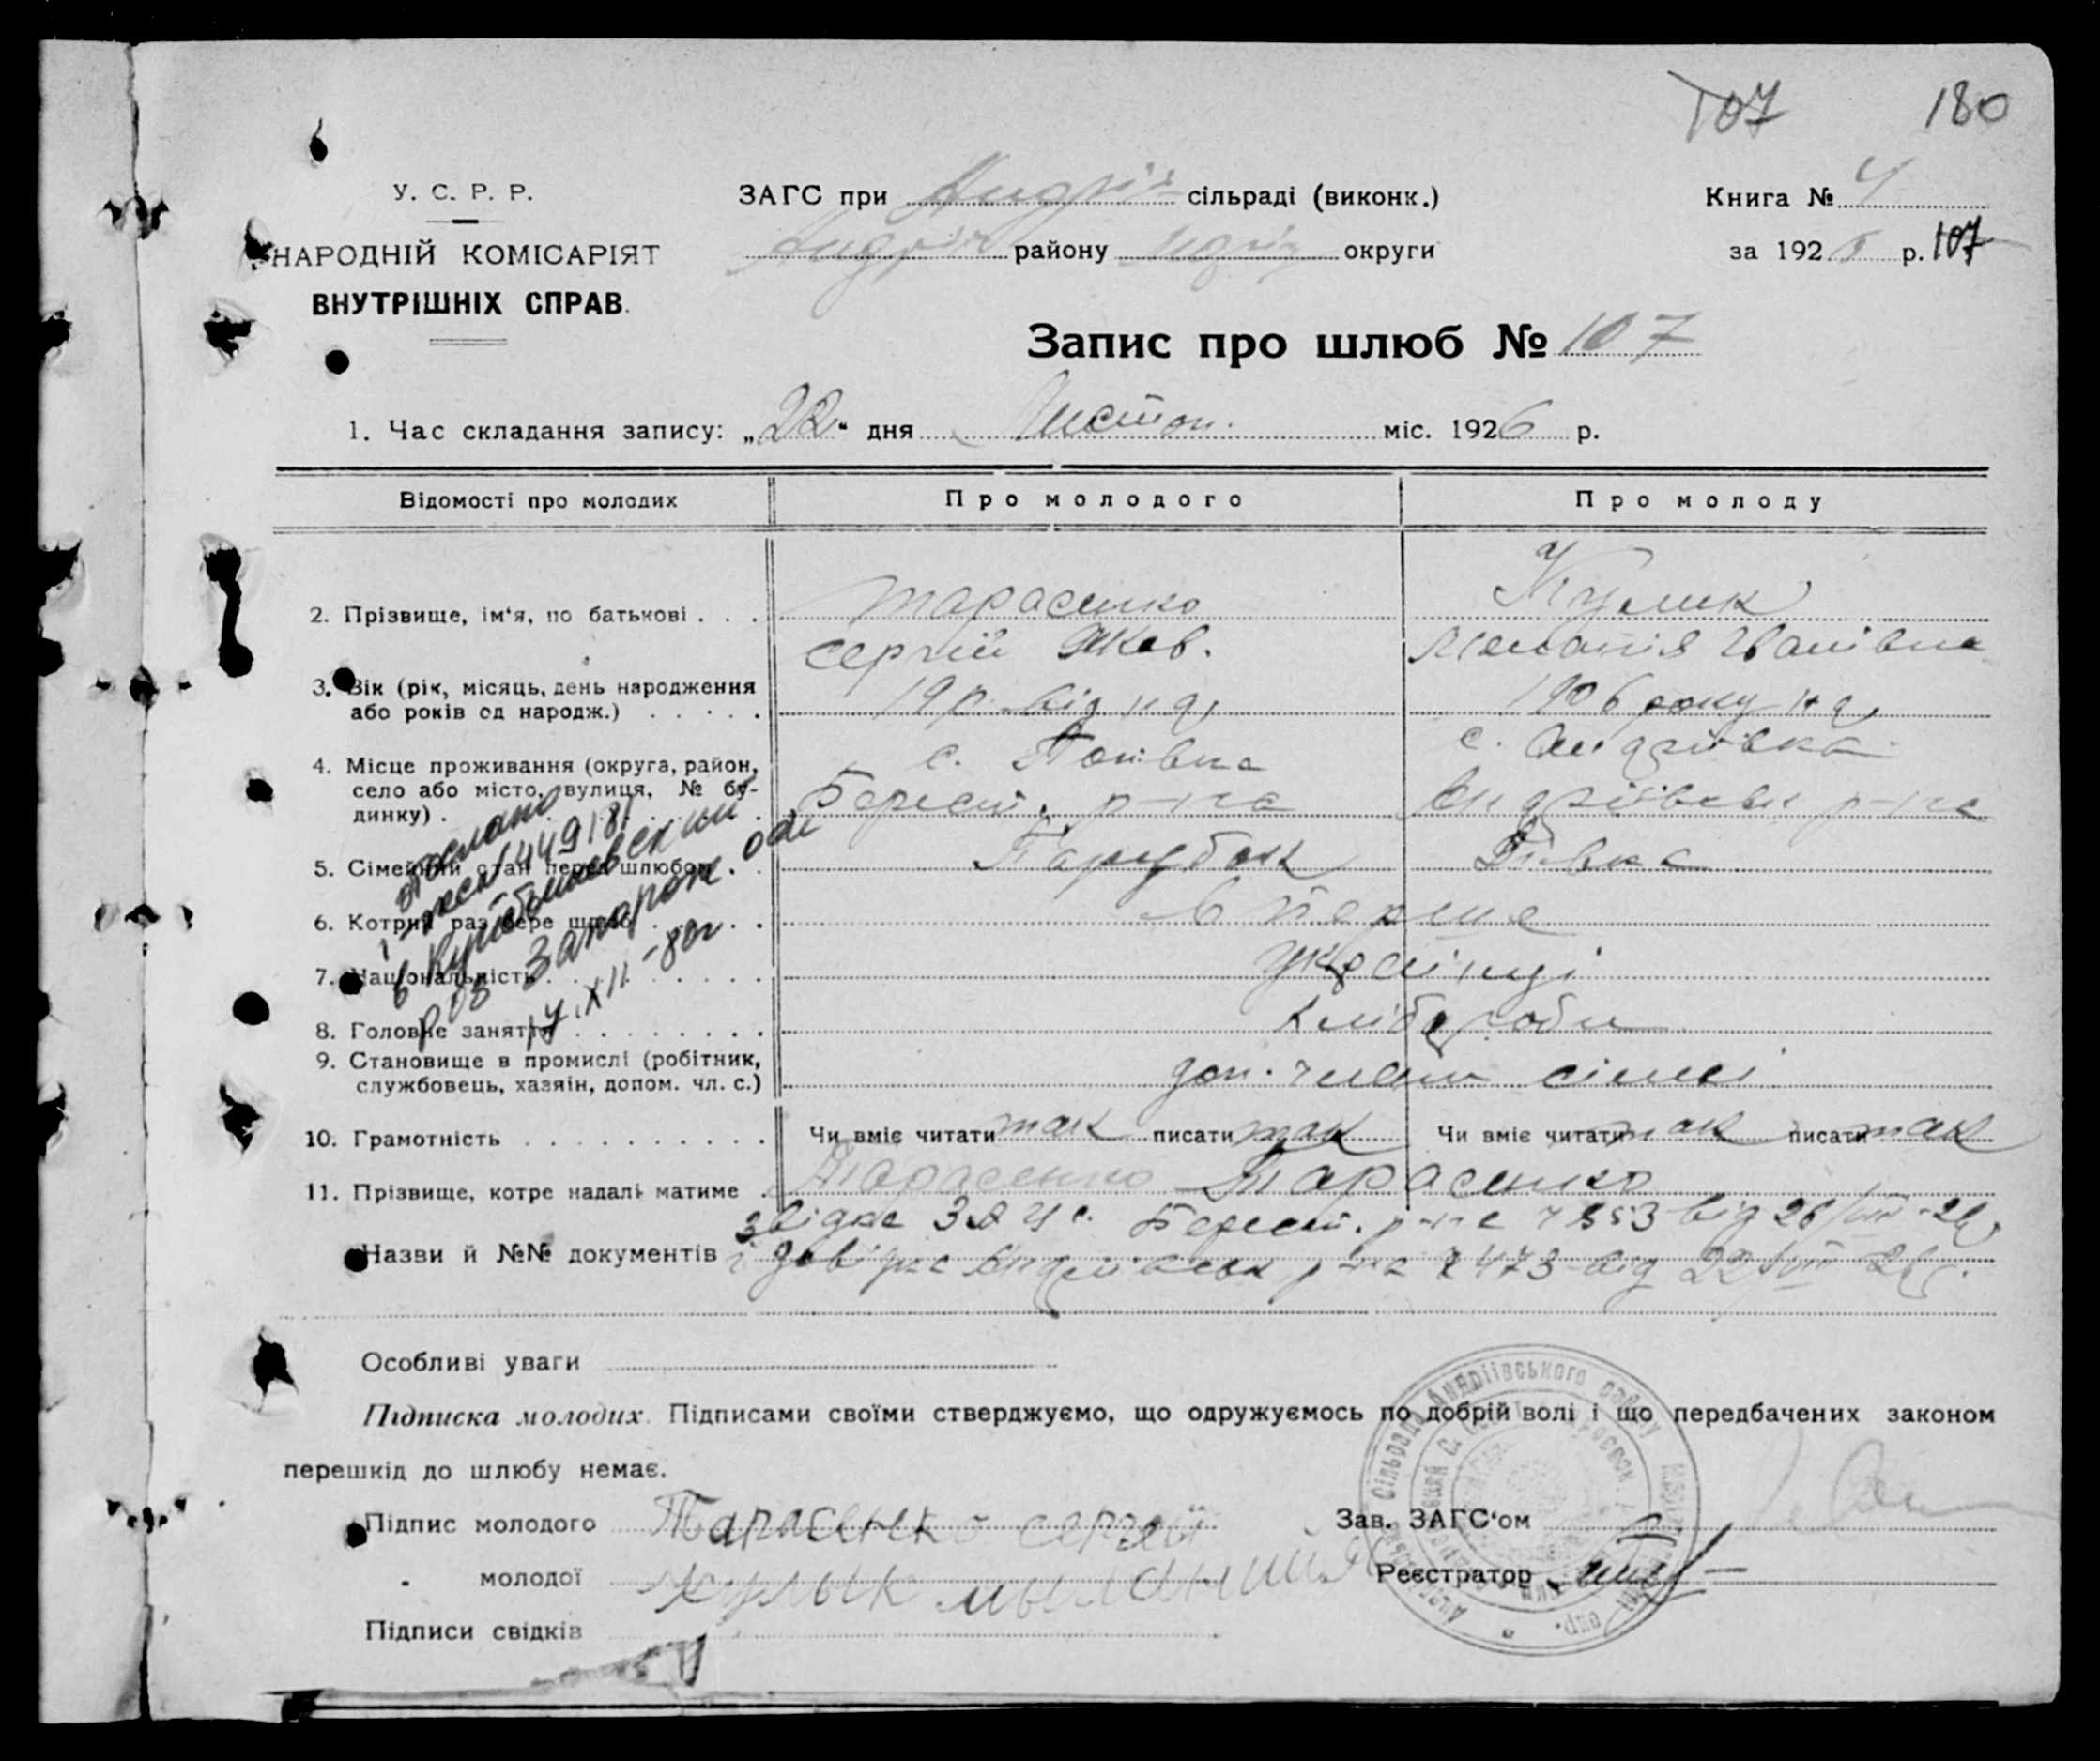 107 180
У. С. Р. Р.
НАРОДНІЙ КОМІСАРІЯТ
ВНУТРІШНІХ СПРАВ.
ЗАГС при Андрії сільраді (виконк.)
Андрії району округи
Книга № 4
за 192 р. 107
Запис про шлюб № 107
1. Час складання запису: „22“ дня Листоп. міс. 1926 р.
Відомості про молодих Про молодого Про молоду
2. Прізвище, ім‘я, по батькові . . . Тарасенко Кулик
Сергій Яков. Меланія Іванівна
3. Вік (рік, місяць, день народження
або років од народж.) . . . . . 19 р. від н. 1906 року н.
4. Місце проживання (округа, район,
село або місто, вулиця, № бу-
динку) .
с. Попівка с. Андріївка
Берест. р-на Андріївськ р-на
5. Сімейний стан перед шлюбом . . Парубок Дівка
6. Котрий раз бере шлюб . . . . . в перше
7. Національність . . . . . . . . українці
8. Головне заняття . . . . . . . . хлібороби
9. Становище в промислі (робітник,
службовець, хазяїн, допом. чл. с.) доп. член сімьї
отослано
1 экз 1449181
в Куйбышевский
р ов Запорож обл
17.XII-80г
10. Грамотність . . . . . . . . . . Чи вміє читати так писати так Чи вміє читати так писати так
11. Прізвище, котре надалі матиме . Тарасенко Тарасенко
Назви й №№ документів
Берест. р-на від 26/VIII-26
і довідка р-на 473 від 22
Особливі уваги
Підписка молодих. Підписами своїми стверджуємо, що одружуємось по добрій волі і що передбачених законом
перешкід до шлюбу немає.
Підпис молодого Тарасенко сергей
„ молодої кулык мыланиия
Підписи свідків
Зав. ЗАГС‘ом
Реєстратор
сільрада Андріївського району